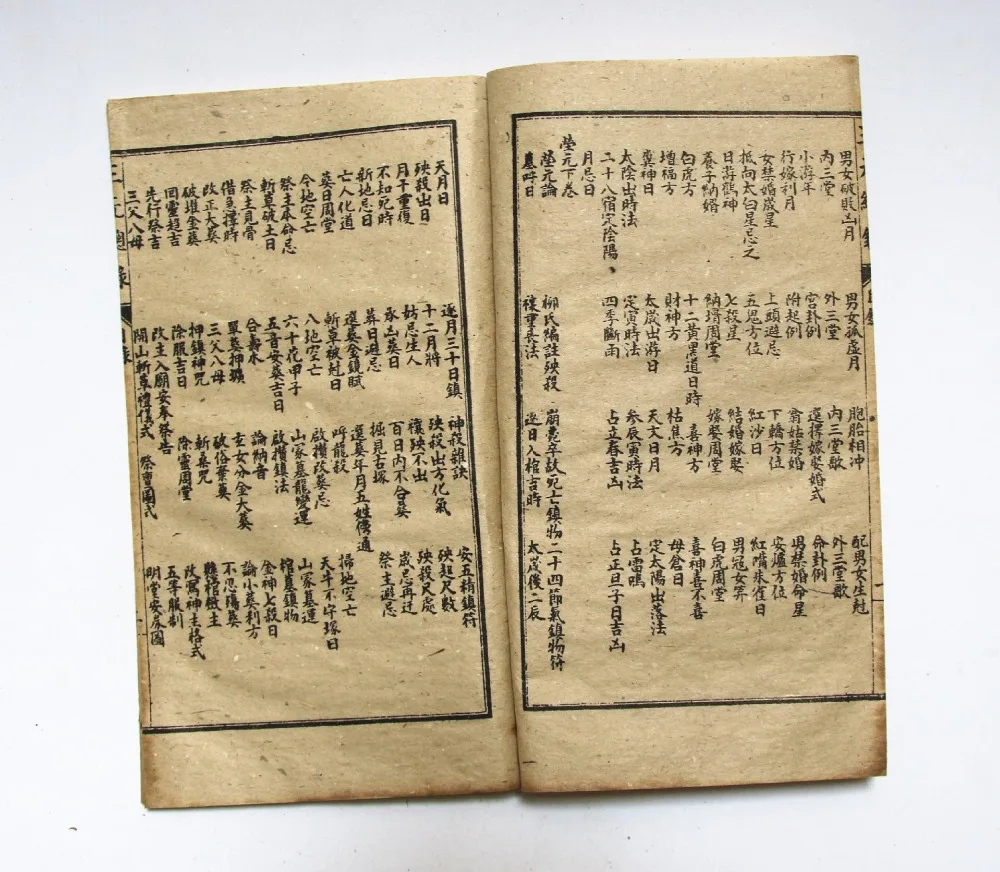 男女破敗凶月 男女孤虛月 胞胎相冲 配男女生尅
內三堂 外三堂 內三堂歌 外三堂歌
小游年 宮卦例 選擇嫁娶婚式 命卦例
行嫁利月 附起例 翁姑禁婚 男禁婚命星
女禁婚歲星 上頭避忌 下轎方位 安爐方位
抵向太白星忌之 五鬼方位 紅沙日 紅嘴朱雀日
日游鶴神 七殺星 結婚嫁娶 男冠女笄
養子納婚 納壻周堂 嫁娶周堂 白虎周堂
白虎方 十二黃黑道日時 喜神方 喜神喜不喜
增福方 財神方 枯焦方 母倉日
糞神日 太歲出游日 天火日月 定太陽出落法
太陰出時法 定寅時法 參辰寅時法 占雷鳴
二十八宿定陰陽、 四季斷雨 占立春吉凶 占正旦子日吉凶
月忌日
塋元下卷
塋元論 柳氏隔註殃殺 崩薨卒歿死亡鎮物 二十四節氣鎮物符
墓呼日 禳重長法 逐日入棺吉時 太歲後二辰
天月日 逐月三十日鎮 神殺雜訣 安五精鎮符
殃殺出日 十二月將 殃殺出方化氣 殃起尺數
月干重復 姑忌生人 禳殃不出 殃殺尺處
不知死時 承凶葬日 百日內不合葬 歲忌再迁
新地忌日 葬日避忌 掘見古塚 祭主避忌
亡人化道 選葬金鏡賦 選葬年月五姓傍通
葬日周堂 斬草破封日 呼龍殺 掃地空亡
今地空亡 八地空亡 啟攢改葬忌 天牛不守塚日
祭主本命忌 六十花甲子 山家墓龍變運 山家墓運
斬草破土日 五音安葬吉日 啟攢鎮法 棺墓鎮物
祭主見骨 合壽木 論納音 金神七殺日
借急擇時 單葬押壙 玄女分金大葬 論小葬利方
改正大葬 三父八母 破俗棄葬 不忍殤葬
破堆金葬 押鎮神咒 斬桑咒
回靈超吉 除服吉日 除靈周堂 改寫神主格式
先行祭告 改主入廟安奉祭告 五等服制
三父八母 開山斬草禮儀式 祭靈圖式 明堂安
三元總錄 目錄